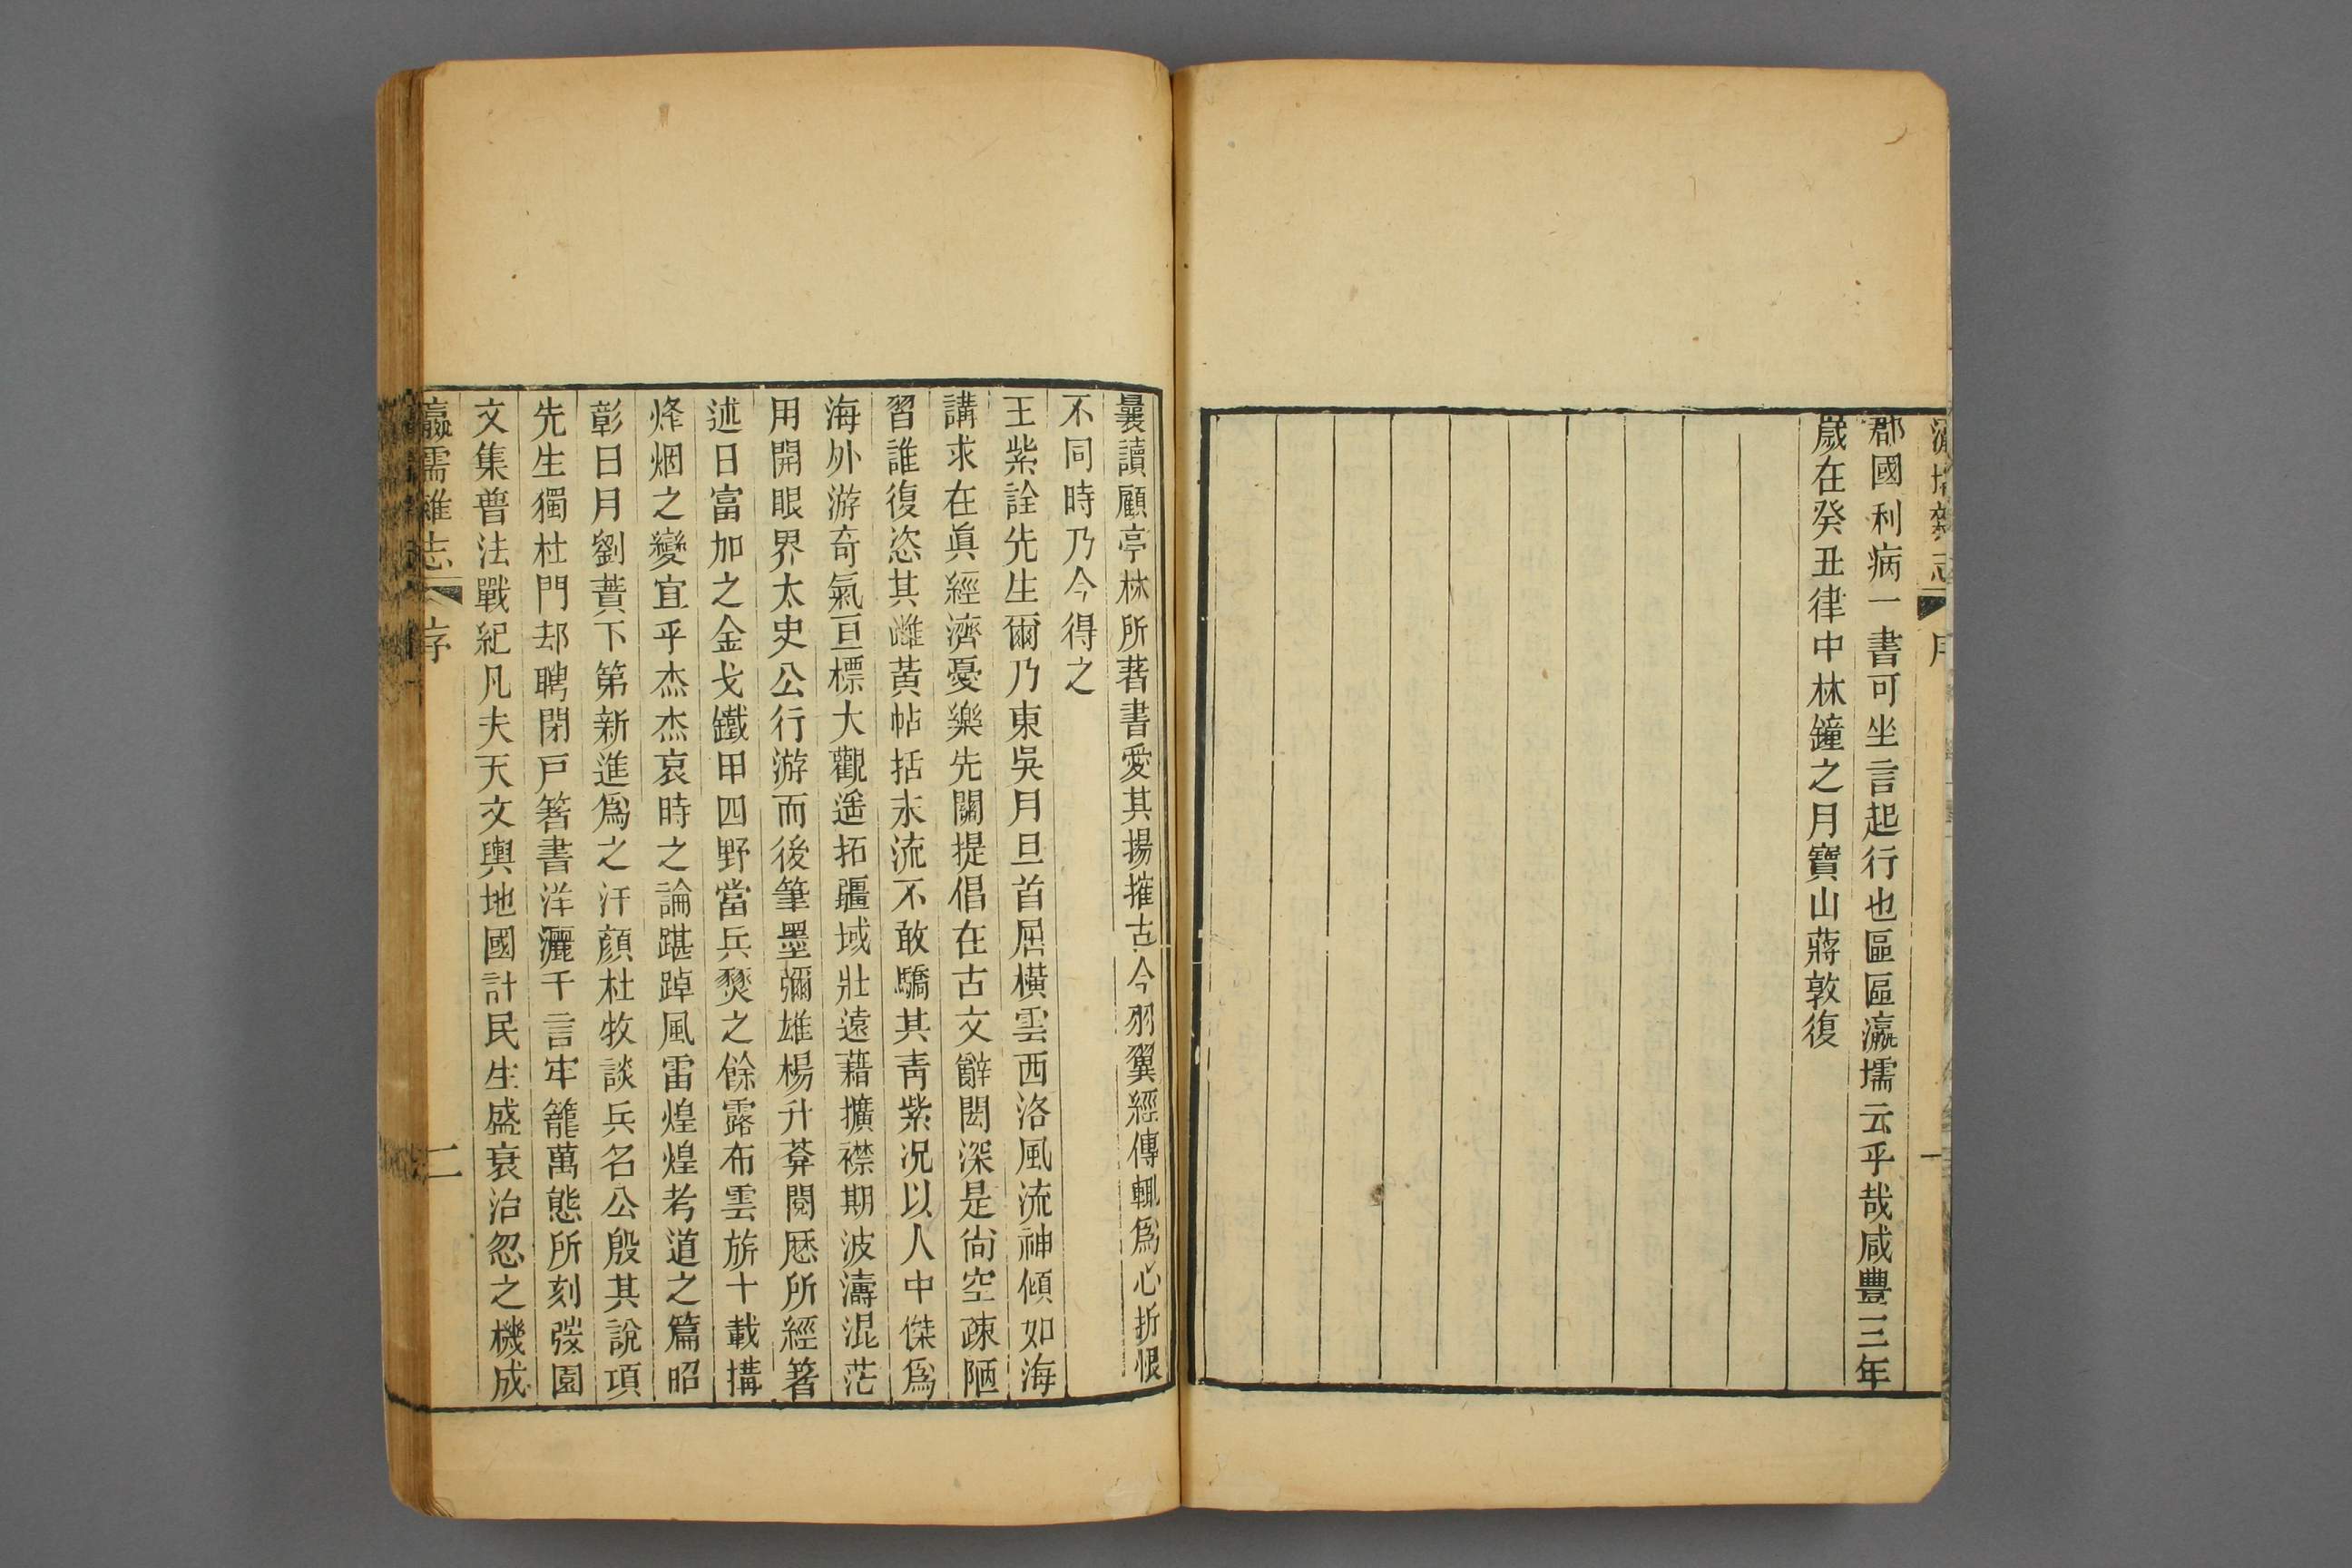 郡國利病一書可坐言起行也區區瀛壖云乎哉咸豐三年
歲在癸丑律中林鐘之月寶山蔣敦復
曩讀顧亭林所著書愛其揚搉古今羽翼經傳輒爲心折恨
不同時乃今得之
王紫詮先生爾乃東吳月旦首屈橫雲西洛風流神傾如海
講求在眞經濟憂樂先關提倡在古文辭閎深是尙空疎陋
習誰復恣其雌黃帖括末流不敢驕其靑紫況以人中傑爲
海外游奇氣亘標大觀遙拓疆域壯遠藉擴襟期波濤混茫
用開眼界太史公行游而後筆墨彌雄楊升菴閱歷所經著
述日富加之金戈鐵甲四野當兵燹之餘露布雲旂十載搆
烽烟之變宜乎杰杰哀時之論踸踔風雷煌煌考道之篇昭
彰日月劉蕡下第新進爲之汗顏杜牧談兵名公殷其說項
先生獨杜門却聘閉戸箸書洋灑千言牢籠萬態所刻弢園
文集普法戰紀凡夫天文輿地國計民生盛衰治忽之機成
瀛壖雜志 序 二